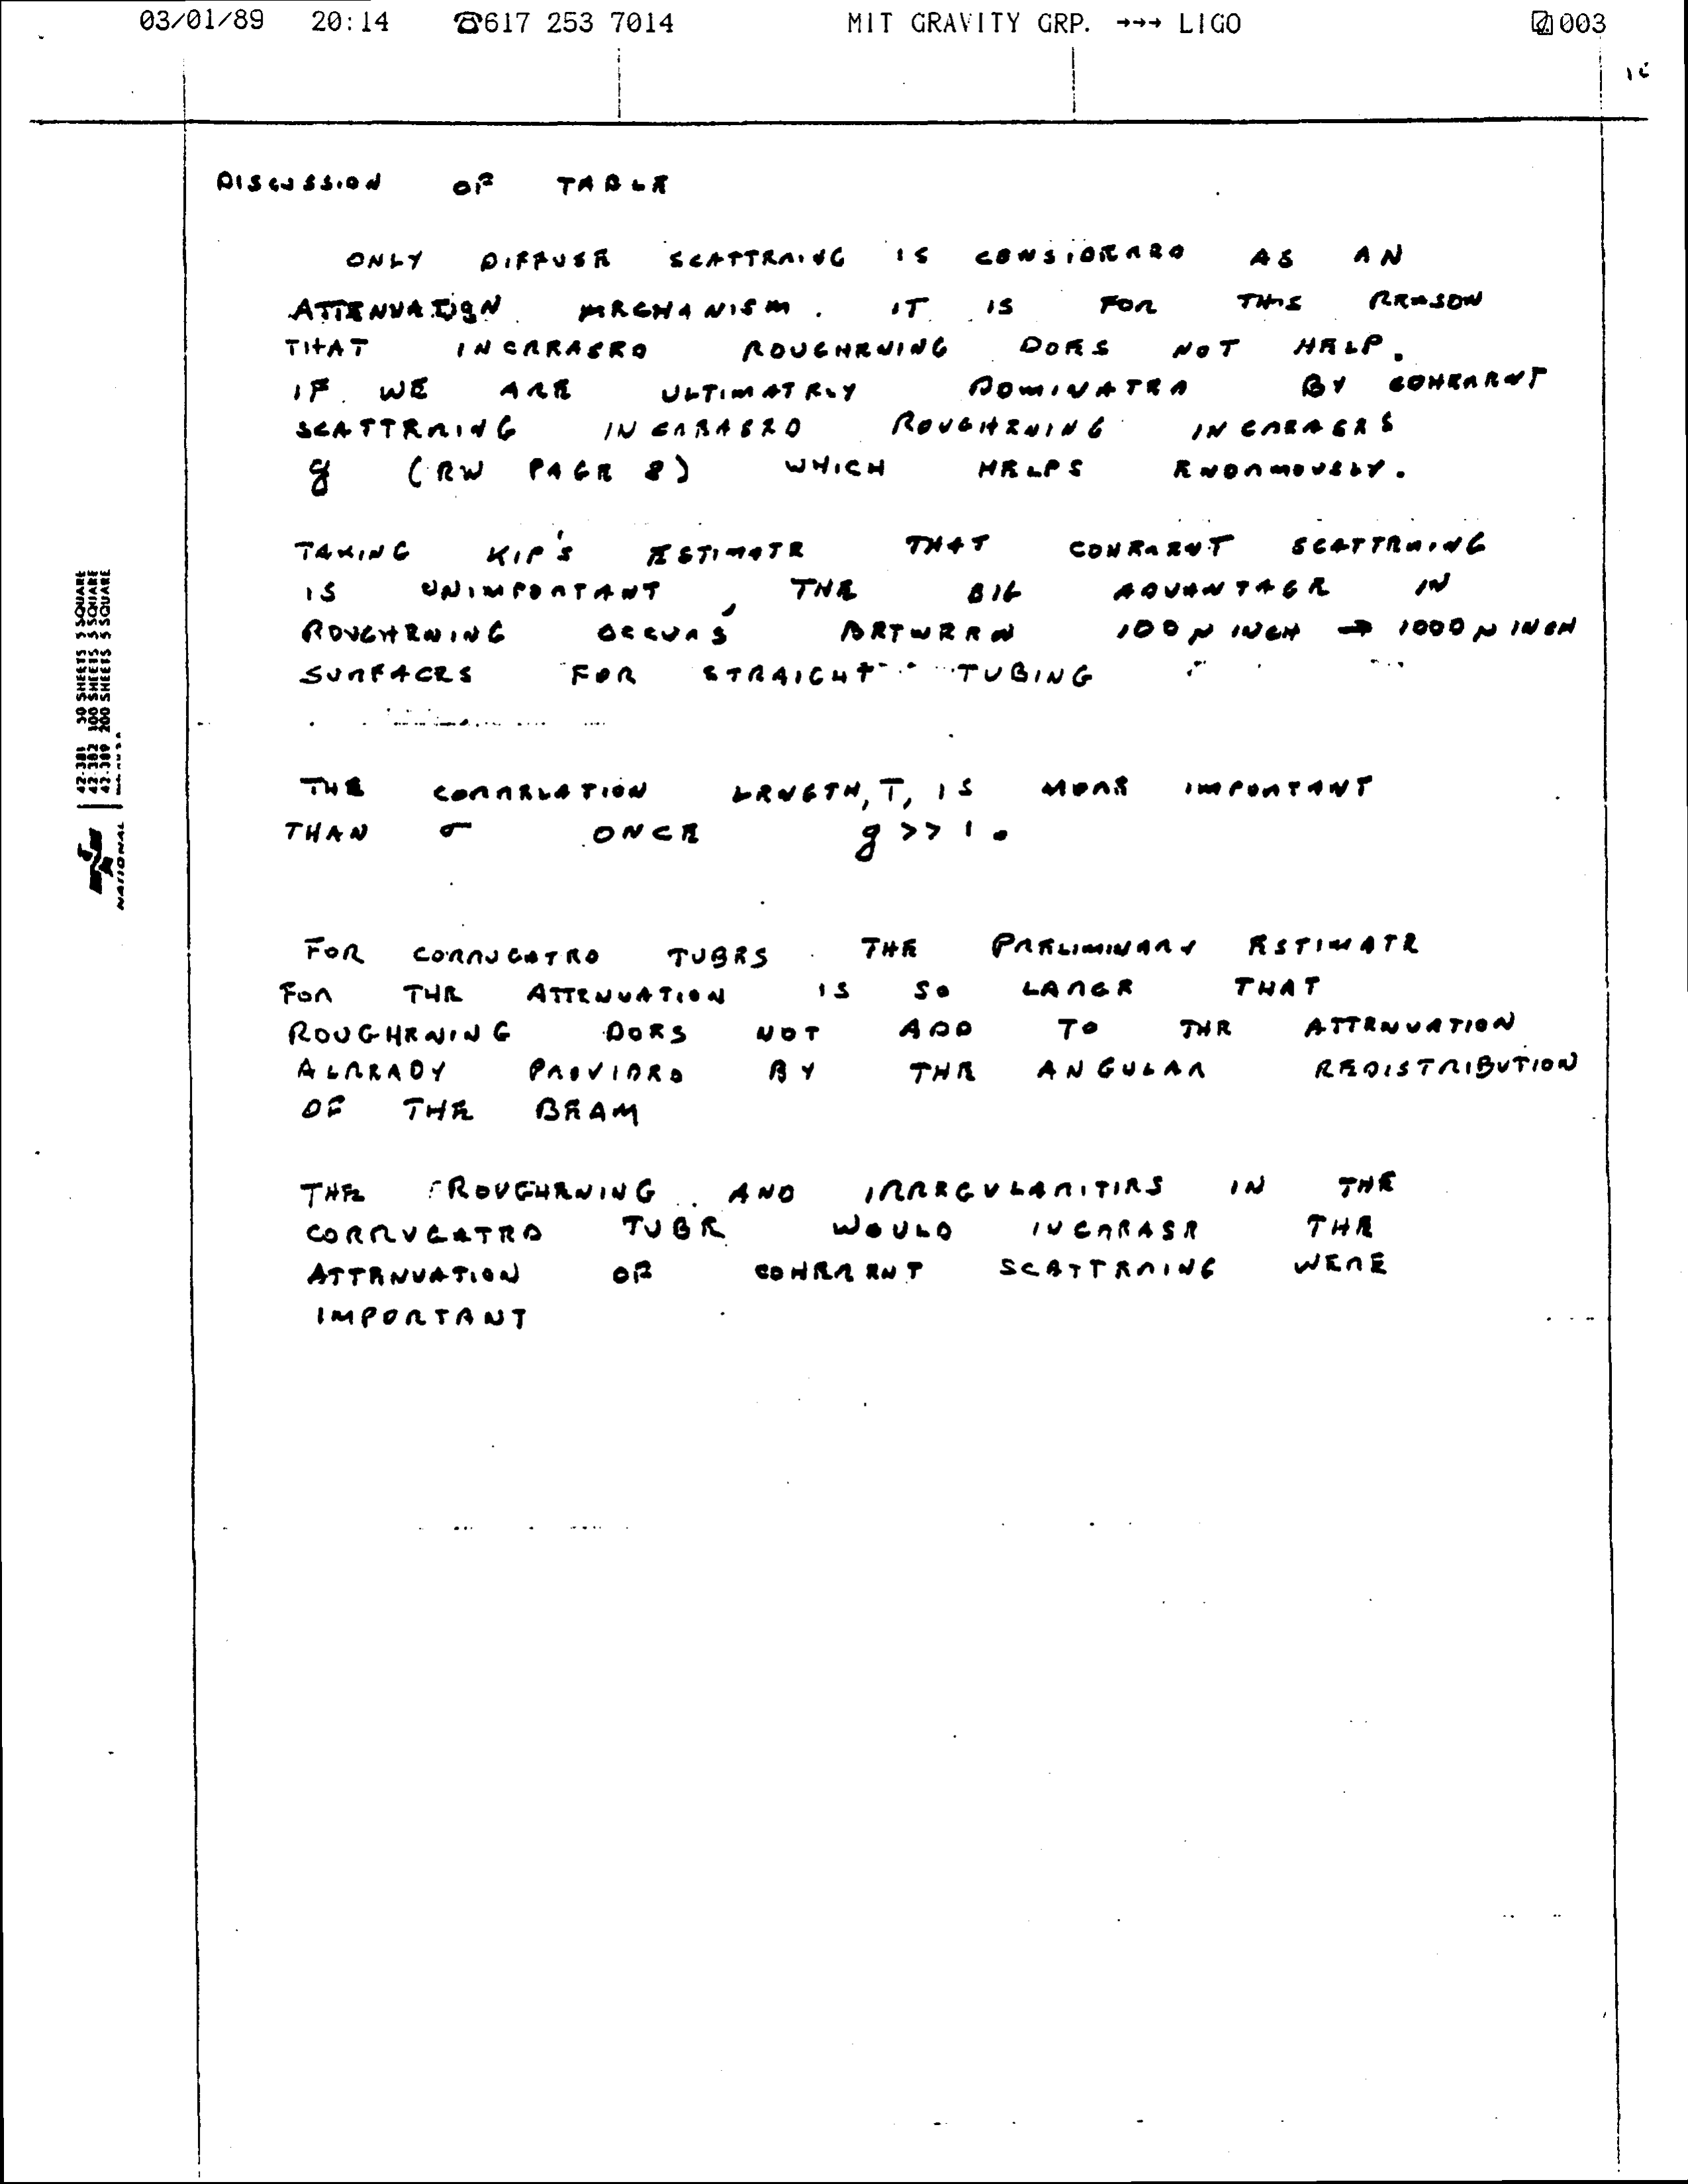 03/01/89 20:14 ☎617 253 7014 MIT GRAVITY GRP. →→→ LIGO 003
DISCUSSION OF TABLE
ONLY DIFFUSE SCATTERING IS CONSIDERED AS AN
ATTENUATION MECHANISM. IT IS FOR THIS REASON
THAT INCREASED ROUGHENING DOES NOT HELP.
IF WE ARE ULTIMATELY DOMINATED BY COHERENT
SCATTERING INCREASED ROUGHENING INCREASES
g (RW PAGE 8) WHICH HELPS ENORMOUSLY.
TAKING KIP'S ESTIMATE THAT COHERENT SCATTERING
IS UNIMPORTANT, THE BIG ADVANTAGE IN
ROUGHENING OCCURS BETWEEN 100 μ INCH → 1000 μ INCH
SURFACES FOR STRAIGHT TUBING
THE CORRELATION LENGTH, T, IS MORE IMPORTANT
THAN σ ONCE g >> 1.
FOR CORRUGATED TUBES THE PRELIMINARY ESTIMATE
FOR THE ATTENUATION IS SO LARGE THAT
ROUGHENING DOES NOT ADD TO THE ATTENUATION
ALREADY PROVIDED BY THE ANGULAR REDISTRIBUTION
OF THE BEAM
THE ROUGHENING AND IRREGULARITIES IN THE
CORRUGATED TUBE WOULD INCREASE THE
ATTENUATION OF COHERENT SCATTERING WERE
IMPORTANT
42-381 50 SHEETS 5 SQUARE
42-382 100 SHEETS 5 SQUARE
42-389 200 SHEETS 5 SQUARE
NATIONAL